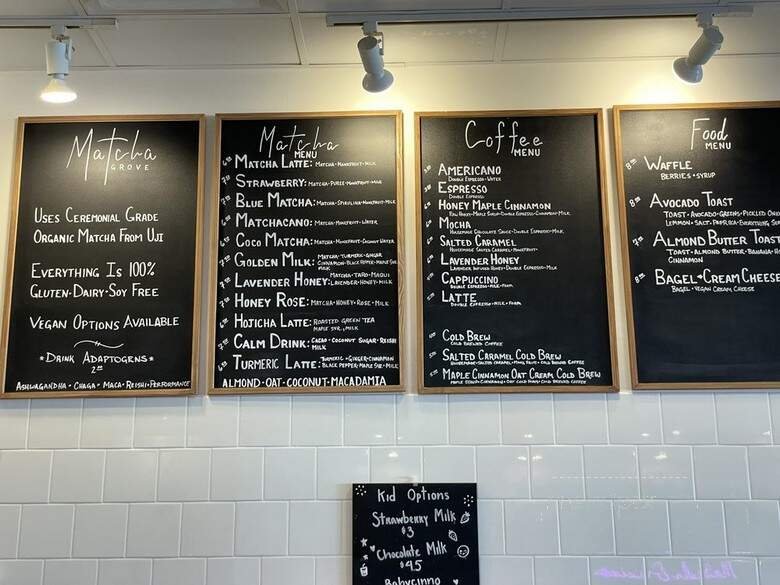 Matcha
GROVE
USES CEREMONIAL GRADE
ORGANIC MATCHA FROM UJI
EVERYTHING IS 100%
GLUTEN-DAIRY-SOY FREE
VEGAN OPTIONS AVAILABLE
*DRINK ADAPTOGENS*
ASHWAGANDHA • CHAGA • MACA • REISHI • PERFORMANCE
Matcha
MENU
MATCHA LATTE: MATCHA • MONKFRUIT • MILK
STRAWBERRY: MATCHA • PUREE • MONKFRUIT • MILK
BLUE MATCHA: MATCHA • SPIRULINA • MONKFRUIT • MILK
MATCHACANO: MATCHA • MONKFRUIT • WATER
COCO MATCHA: MATCHA • MONKFRUIT • COCONUT WATER
GOLDEN MILK: MATCHA • TURMERIC • GINGER
CINNAMON • BLACK PEPPER • MAPLE SYR.
MILK
LAVENDER HONEY: MATCHA • TARO • MAQUI
LAVENDER • HONEY • MILK
HONEY ROSE: MATCHA • HONEY • ROSE • MILK
HOJICHA LATTE: ROASTED GREEN TEA
MAPLE SYR. MILK
CALM DRINK: CACAO • COCONUT SUGAR • REISHI
MILK
TURMERIC LATTE: TURMERIC • GINGER • CINNAMON
BLACK PEPPER • MAPLE SYR. • MILK
ALMOND • OAT • COCONUT • MACADAMIA
Coffee
MENU
AMERICANO
DOUBLE ESPRESSO • WATER
ESPRESSO
DOUBLE ESPRESSO
HONEY MAPLE CINNAMON
RAW HONEY • MAPLE SYRUP • DOUBLE ESPRESSO • CINNAMON • MILK
MOCHA
HOMEMADE CHOCOLATE SAUCE • DOUBLE ESPRESSO • MILK
SALTED CARAMEL
HOMEMADE SALTED CARAMEL • MONKFRUIT
LAVENDER HONEY
LAVENDER INFUSED HONEY • DOUBLE ESPRESSO • MILK
CAPPUCCINO
DOUBLE ESPRESSO • MILK • FOAM
LATTE
DOUBLE ESPRESSO • MILK • FOAM
COLD BREW
COLD BREWED COFFEE
SALTED CARAMEL COLD BREW
HOMEMADE SALTED CARAMEL • COLD BREWED COFFEE
MAPLE CINNAMON OAT CREAM COLD BREW
MAPLE SYRUP • CINNAMON • OAT CREAM • COLD BREWED COFFEE
Food
MENU
WAFFLE
BERRIES • SYRUP
AVOCADO TOAST
TOAST • AVOCADO • GREENS • PICKLED
LEMMON • SALT • PAPRICA • EVERYTHING
ALMOND BUTTER TOAST
TOAST • ALMOND BUTTER • BANANA
CINNAMON
BAGEL + CREAM CHEESE
BAGEL • VEGAN CREAM CHEESE
Kid Options
Strawberry Milk
$3
Chocolate Milk
$4.5
Babycinno